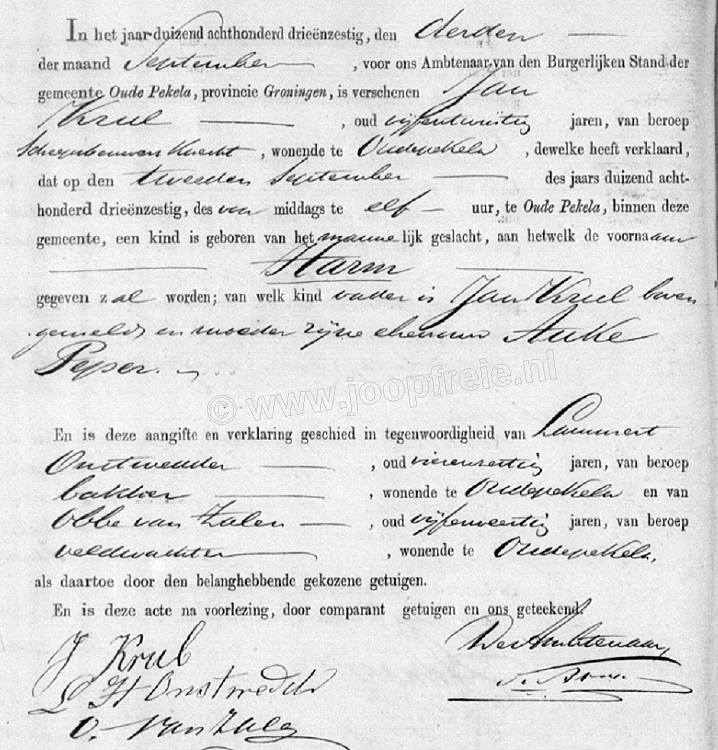 In het jaar duizend achthonderd drieënzestig, den derden
der maand September, voor ons Ambtenaar van den Burgerlijken Stand der
gemeente Oude Pekela, provincie Groningen, is verschenen Jan
Krul, oud vijfentwintig jaren, van beroep
Scheepsbouwers knecht, wonende te Oudepekela, dewelke heeft verklaard,
dat op den tweeden September des jaars duizend acht-
honderd drieënzestig, des voor middags te elf uur, te Oude Pekela, binnen deze
gemeente, een kind is geboren van het mannelijk geslacht, aan hetwelk de voornaam
Harm
gegeven zal worden; van welk kind vader is Jan Krul boven
gemeld, en moeder zijne ehevrouw Auke
Peper.
© www.joopfreie.nl
En is deze aangifte en verklaring geschied in tegenwoordigheid van Lammert
Onstwedder, oud vierenveertig jaren, van beroep
bakker, wonende te Oudepekela en van
Obbe van Zalen, oud vijfenveertig jaren, van beroep
veldwachter, wonende te Oudepekela,
als daartoe door den belanghebbende gekozene getuigen.
En is deze acte na voorlezing, door comparant getuigen en ons geteekend.
De Ambtenaar,
J Krul
L H Onstwedder
O. van Zalen